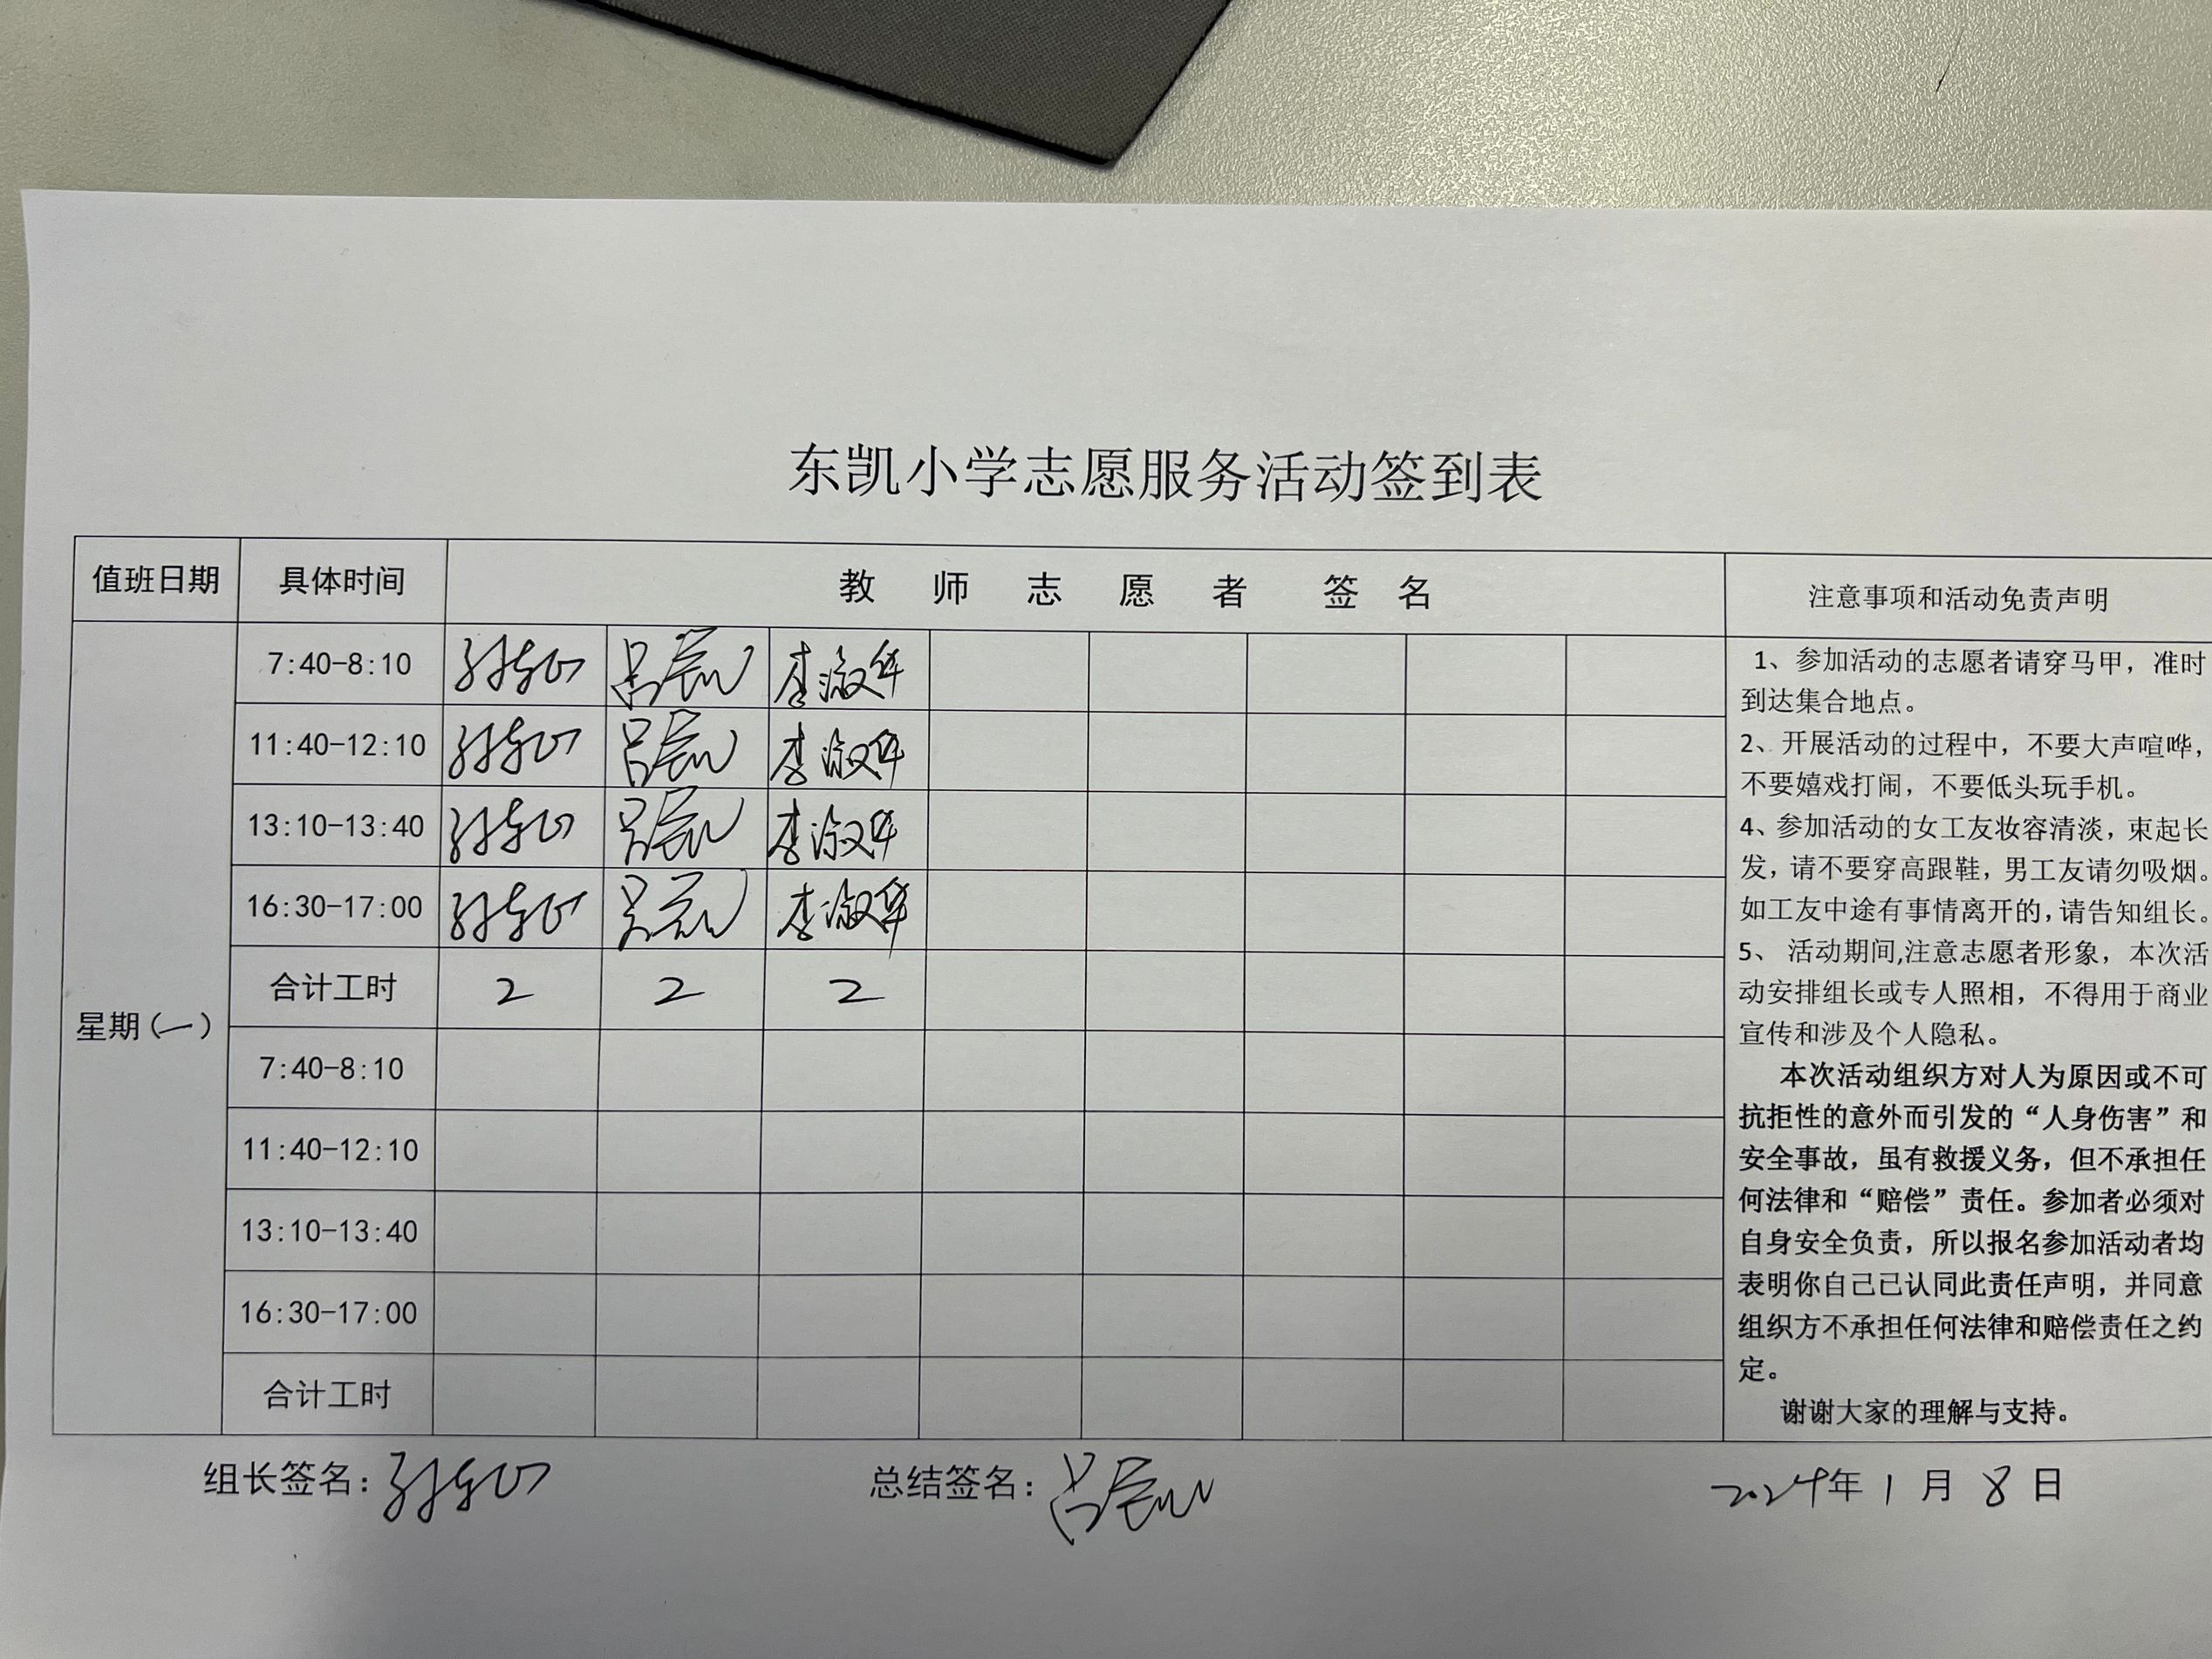 东凯小学志愿服务活动签到表
值班日期 具体时间 教师志愿者签名 注意事项和活动免责声明
星期(一)
7:40-8:10 李淑华
11:40-12:10 李淑华
13:10-13:40 李淑华
16:30-17:00 李淑华
合计工时 2 2 2
7:40-8:10
11:40-12:10
13:10-13:40
16:30-17:00
合计工时
1、参加活动的志愿者请穿马甲，准时
到达集合地点。
2、开展活动的过程中，不要大声喧哗，
不要嬉戏打闹，不要低头玩手机。
4、参加活动的女工友妆容清淡，束起长
发，请不要穿高跟鞋，男工友请勿吸烟。
如工友中途有事情离开的,请告知组长。
5、 活动期间,注意志愿者形象，本次活
动安排组长或专人照相，不得用于商业
宣传和涉及个人隐私。
本次活动组织方对人为原因或不可
抗拒性的意外而引发的“人身伤害”和
安全事故，虽有救援义务，但不承担任
何法律和“赔偿”责任。参加者必须对
自身安全负责，所以报名参加活动者均
表明你自己已认同此责任声明，并同意
组织方不承担任何法律和赔偿责任之约
定。
谢谢大家的理解与支持。
组长签名： 总结签名： 2024年1月8日